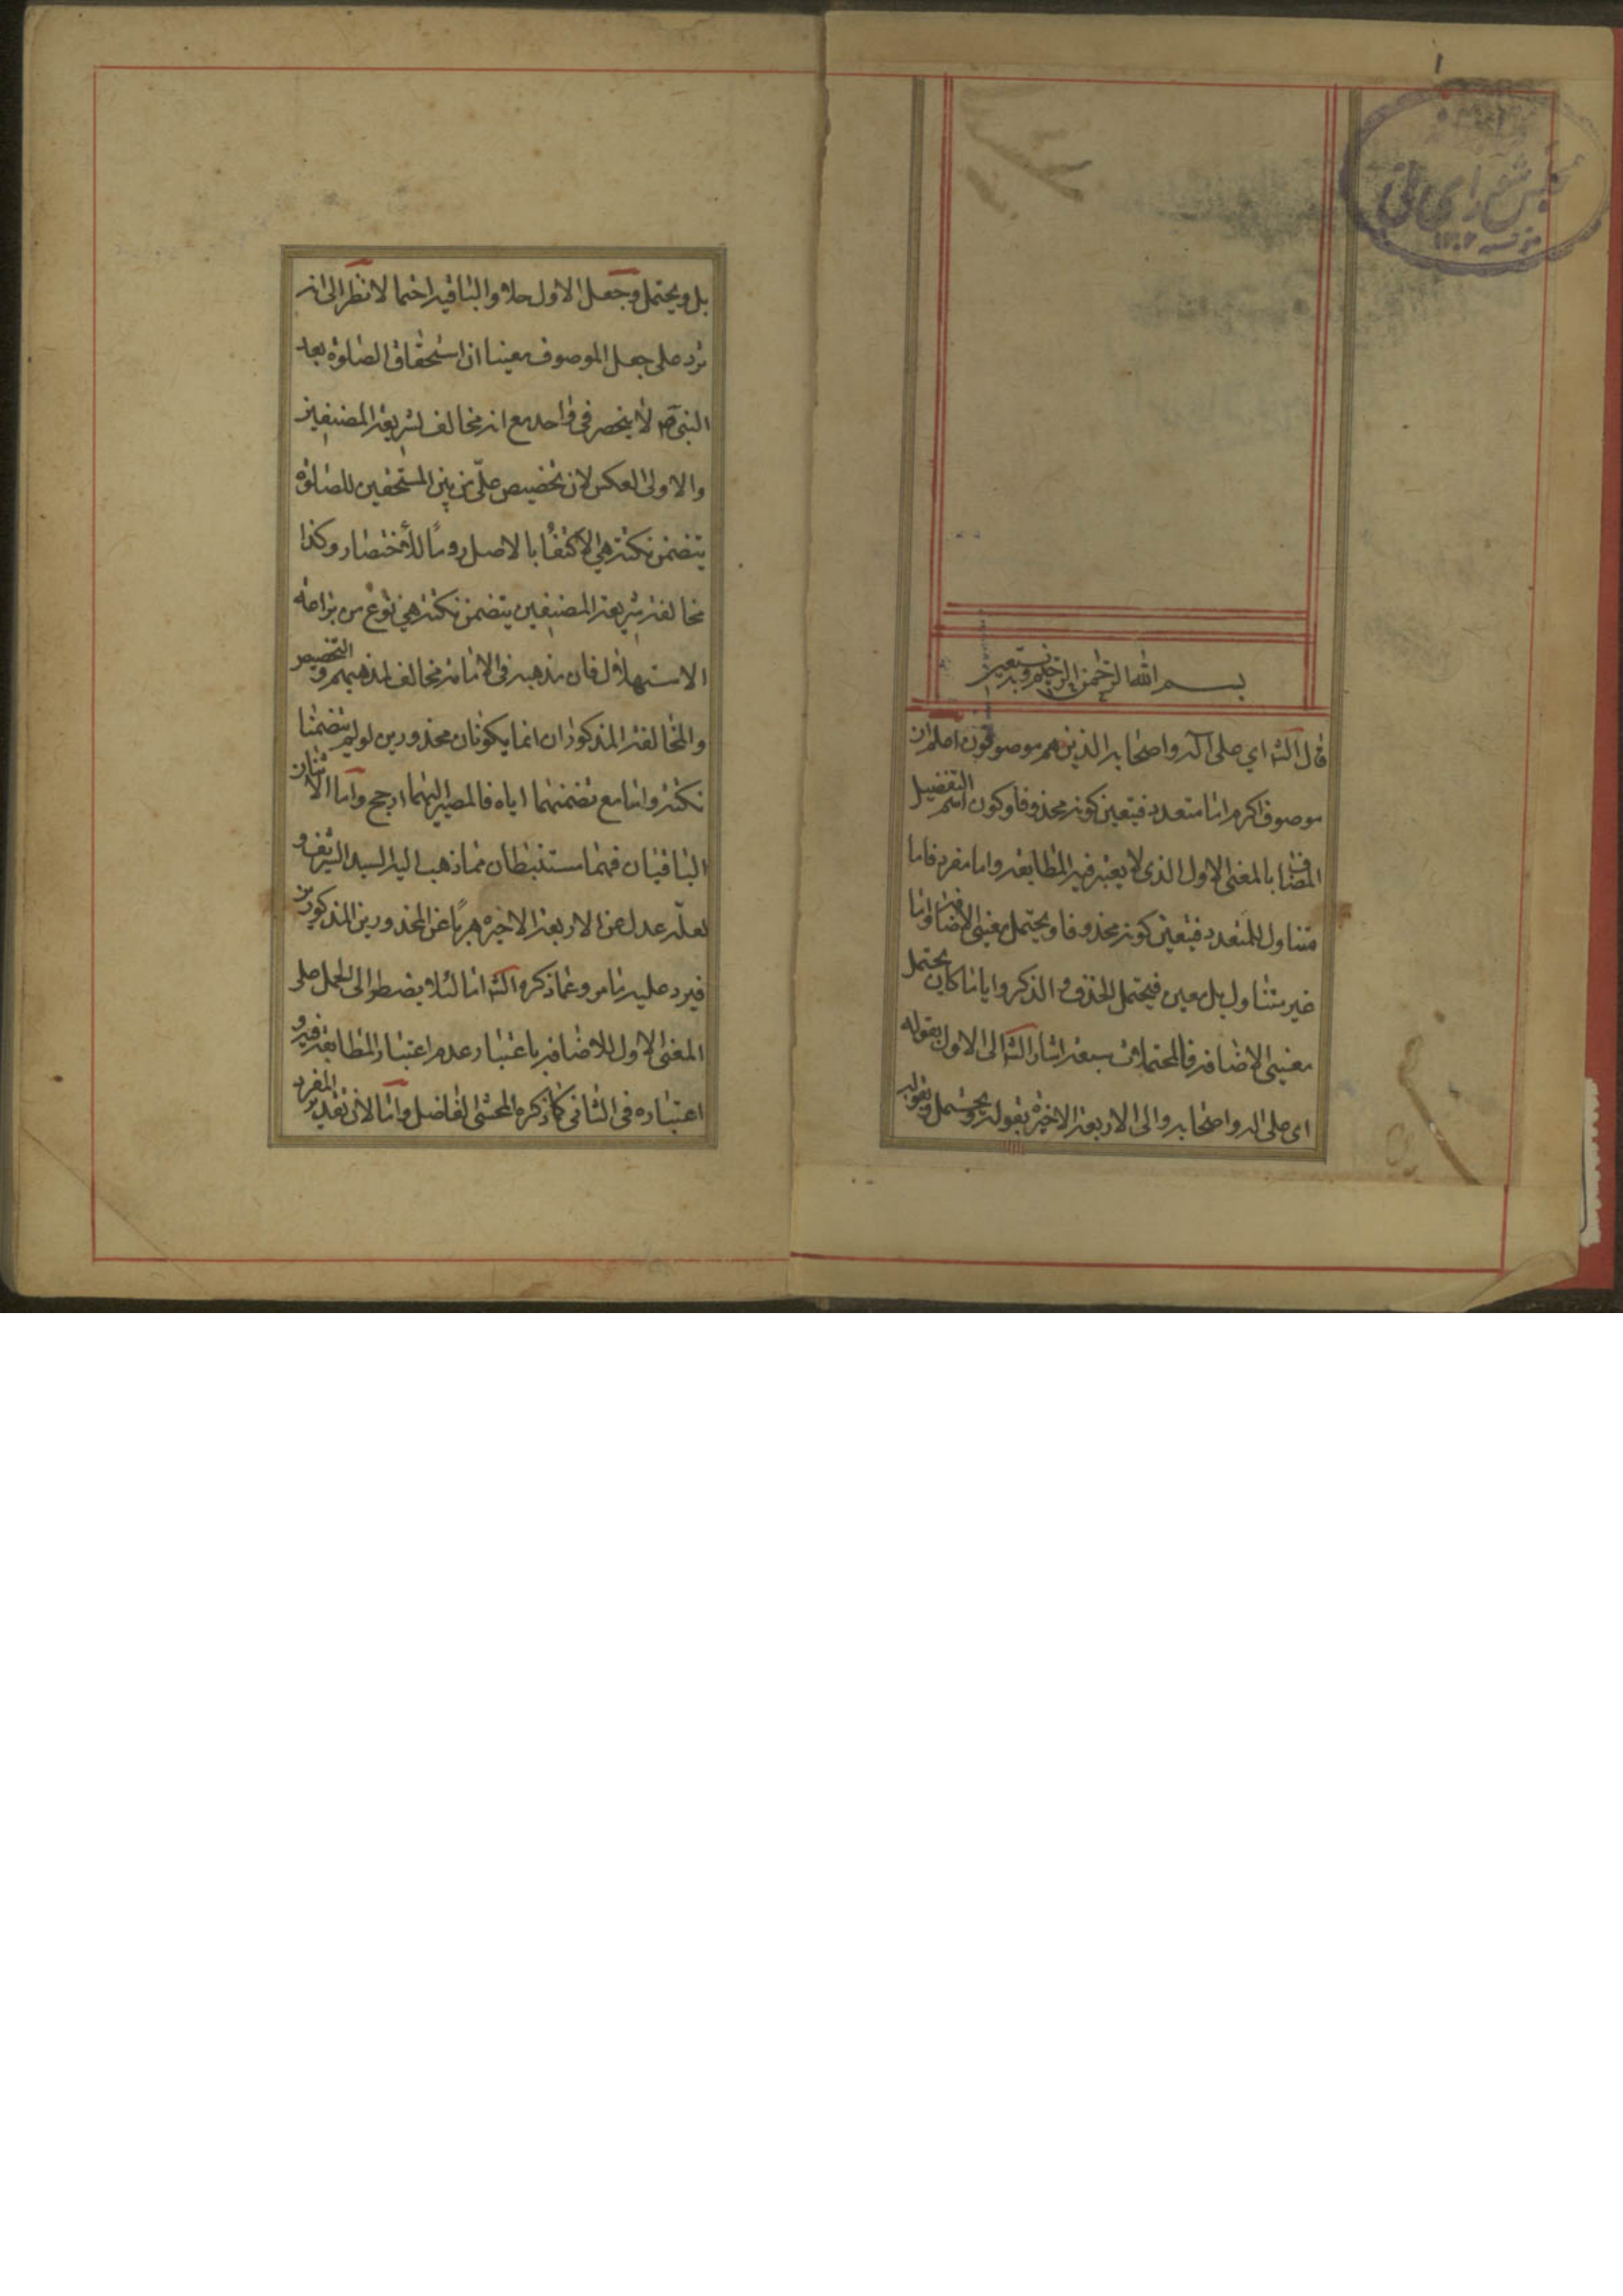 ١
مجلس شورای ملی
بسم الله الرحمن الرحيم وبه نستعين
قال الشه اي على آله واصحابه الذين هم موصوفون اعلم ان
موصوف اكرم اما متعدد فيتعين كونه محذوفا وكون اسم التفضيل
المضاف بالمعنى الاول الذى لا يعتبر فيه المطابقة واما مفرد فاما
متناول للمتعدد فيتعين كونه محذوفا ويحتمل معنيى الاضافة واما
غير متناول بل معين فيحتمل الحذف والذكر وايا ما كان يحتمل
معنيى الاضافة فالمحتملات سبعة اشار الشه الى الاول بقوله
اى على اله واصحابه والى الاربعة الاخيرة بقوله ويحتمل وبقوله
بل ويحتمل وجعل الاول حلا والباقية احتمالا نظرا الى انه
يرد على جعل الموصوف معينا ان استحقاق الصلوة بعد
النبى ص لا ينحصر فى واحد مع انه مخالف لشريعة المصنفين
والاولى العكس لان تخصيص على من بين المستحقين للصلوة
يتضمن نكتة هي الاكتفاء بالاصل روما للاختصار وكذا
مخالفة شريعة المصنفين يتضمن نكتة هي نوع من براعة
الاستهلال فان مذهبه فى الامامة مخالف لمذهبهم والتخصيص
والمخالفة المذكوران انما يكونان محذورين لو لم يتضمنا
نكتة واما مع تضمنهما اياه فالمصير اليهما ارجح واما الاثنان
الباقيان فهما مستنبطان مما ذهب اليه السيد الشريف و
لعله عدل عن الاربعة الاخيرة هربا عن المحذورين المذكورين
فيرد عليه ما مر وعما ذكره الشه اما لئلا يضطر الى الحمل على
المعنى الاول للاضافة باعتبار عدم اعتبار المطابقة فيه و
اعتباره فى الثانى كما ذكره المحشى الفاضل واما لان تقدير المفرد